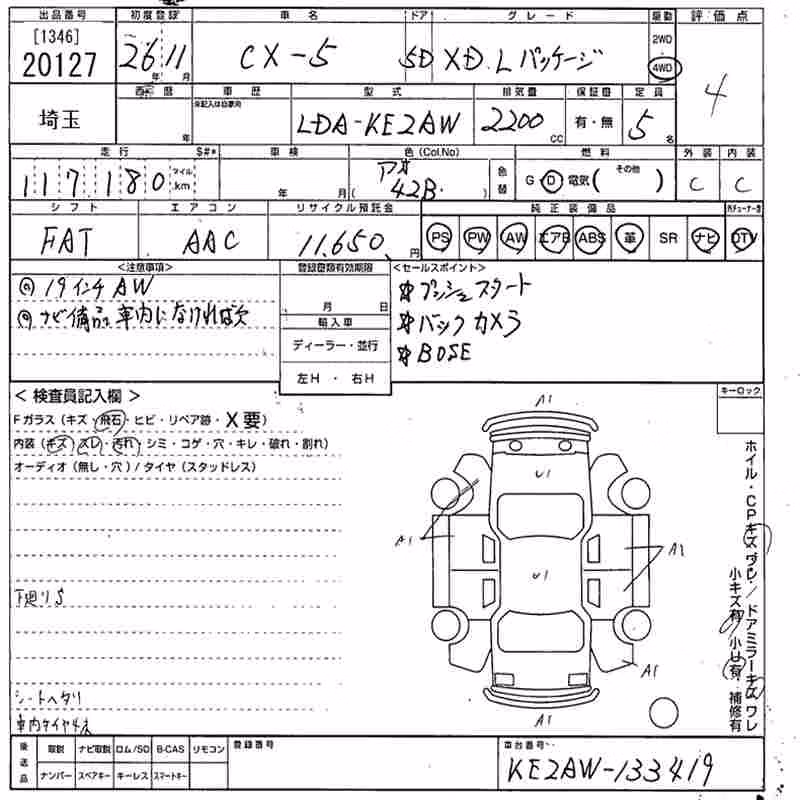 出品番号 初度登録 車名 ドア グレード 駆動 評価点
[1346]
20127
26年 11月 CX-5 5D XD. Lパッケージ 2WD 4WD 4
埼玉
西暦 年 車歴 ※記入は自家用 型式 排気量 保証書 定員
LDA-KE2AW 2200 CC 有・無 5名
走行 S#* 車検 色(Col.No) 燃料 外装 内装
117180 マイル km 年 月 アオ (42B.) 色替 G・D 電気 (その他) C C
シフト エアコン リサイクル預託金 純正装備品
FAT AAC 11,650円 PS PW AW エアB ABS 革 SR ナビ DTV
<注意事項> 登録書類有効期限 <セールスポイント>
◎19インチAW
◎ナビ備品 車内になければ欠
月 日
輸入車
ディーラー・並行
左H・右H
☆プッシュスタート
☆バックカメラ
☆BOSE
<検査員記入欄> キーロック
Fガラス(キズ・飛石・ヒビ・リペア跡・X要)
内装(キズ・スレ・汚れ・シミ・コゲ・穴・キレ・破れ・割れ)
オーディオ(無し・穴)/タイヤ(スタッドレス)
下廻りS
シートヘタリ
A1
U1
A1
A1
U1
A1
A1
ホイル・CPキズ ワレ/ドアミラーキズ ワレ
小キズ有 小U有 補修有
後送品 取説 ナビ取説 ロム/SD B-CAS リモコン 登録番号 車台番号
ナンバー スペアキー キーレス スマートキー
KE2AW-133419